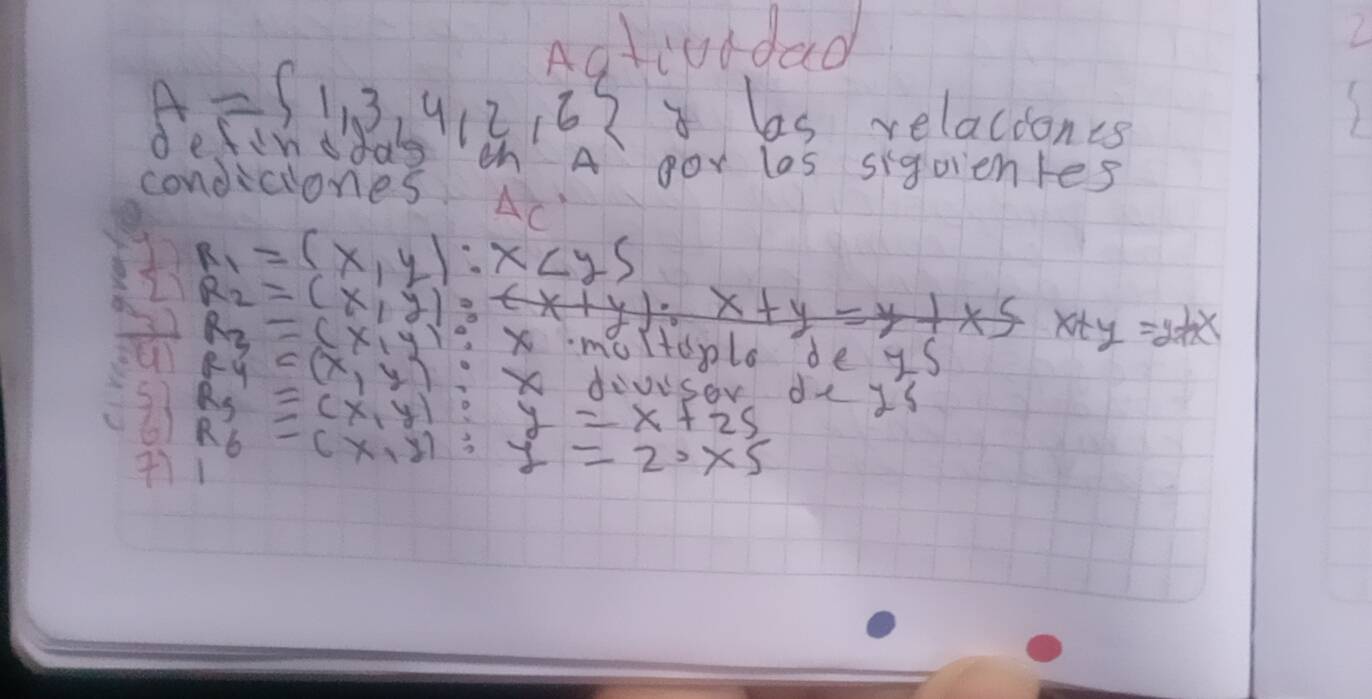 Actividad
A = { 1,3,4,2,6} y las relaciones
definidas en A por las siguientes
condiciones
Ac
1) R1 = (x,y) : x<y5
2) R2 = (x,y) : (x+y): x+y = y+x5 x+y = y+x
3) R3 = (x,y) : x multiplo de y5
4) R4 = (x,y) : x divisor de y5
5) R5 = (x,y) : y = x+25
6) R6 = (x,y) : y = 2•x5
7) 1